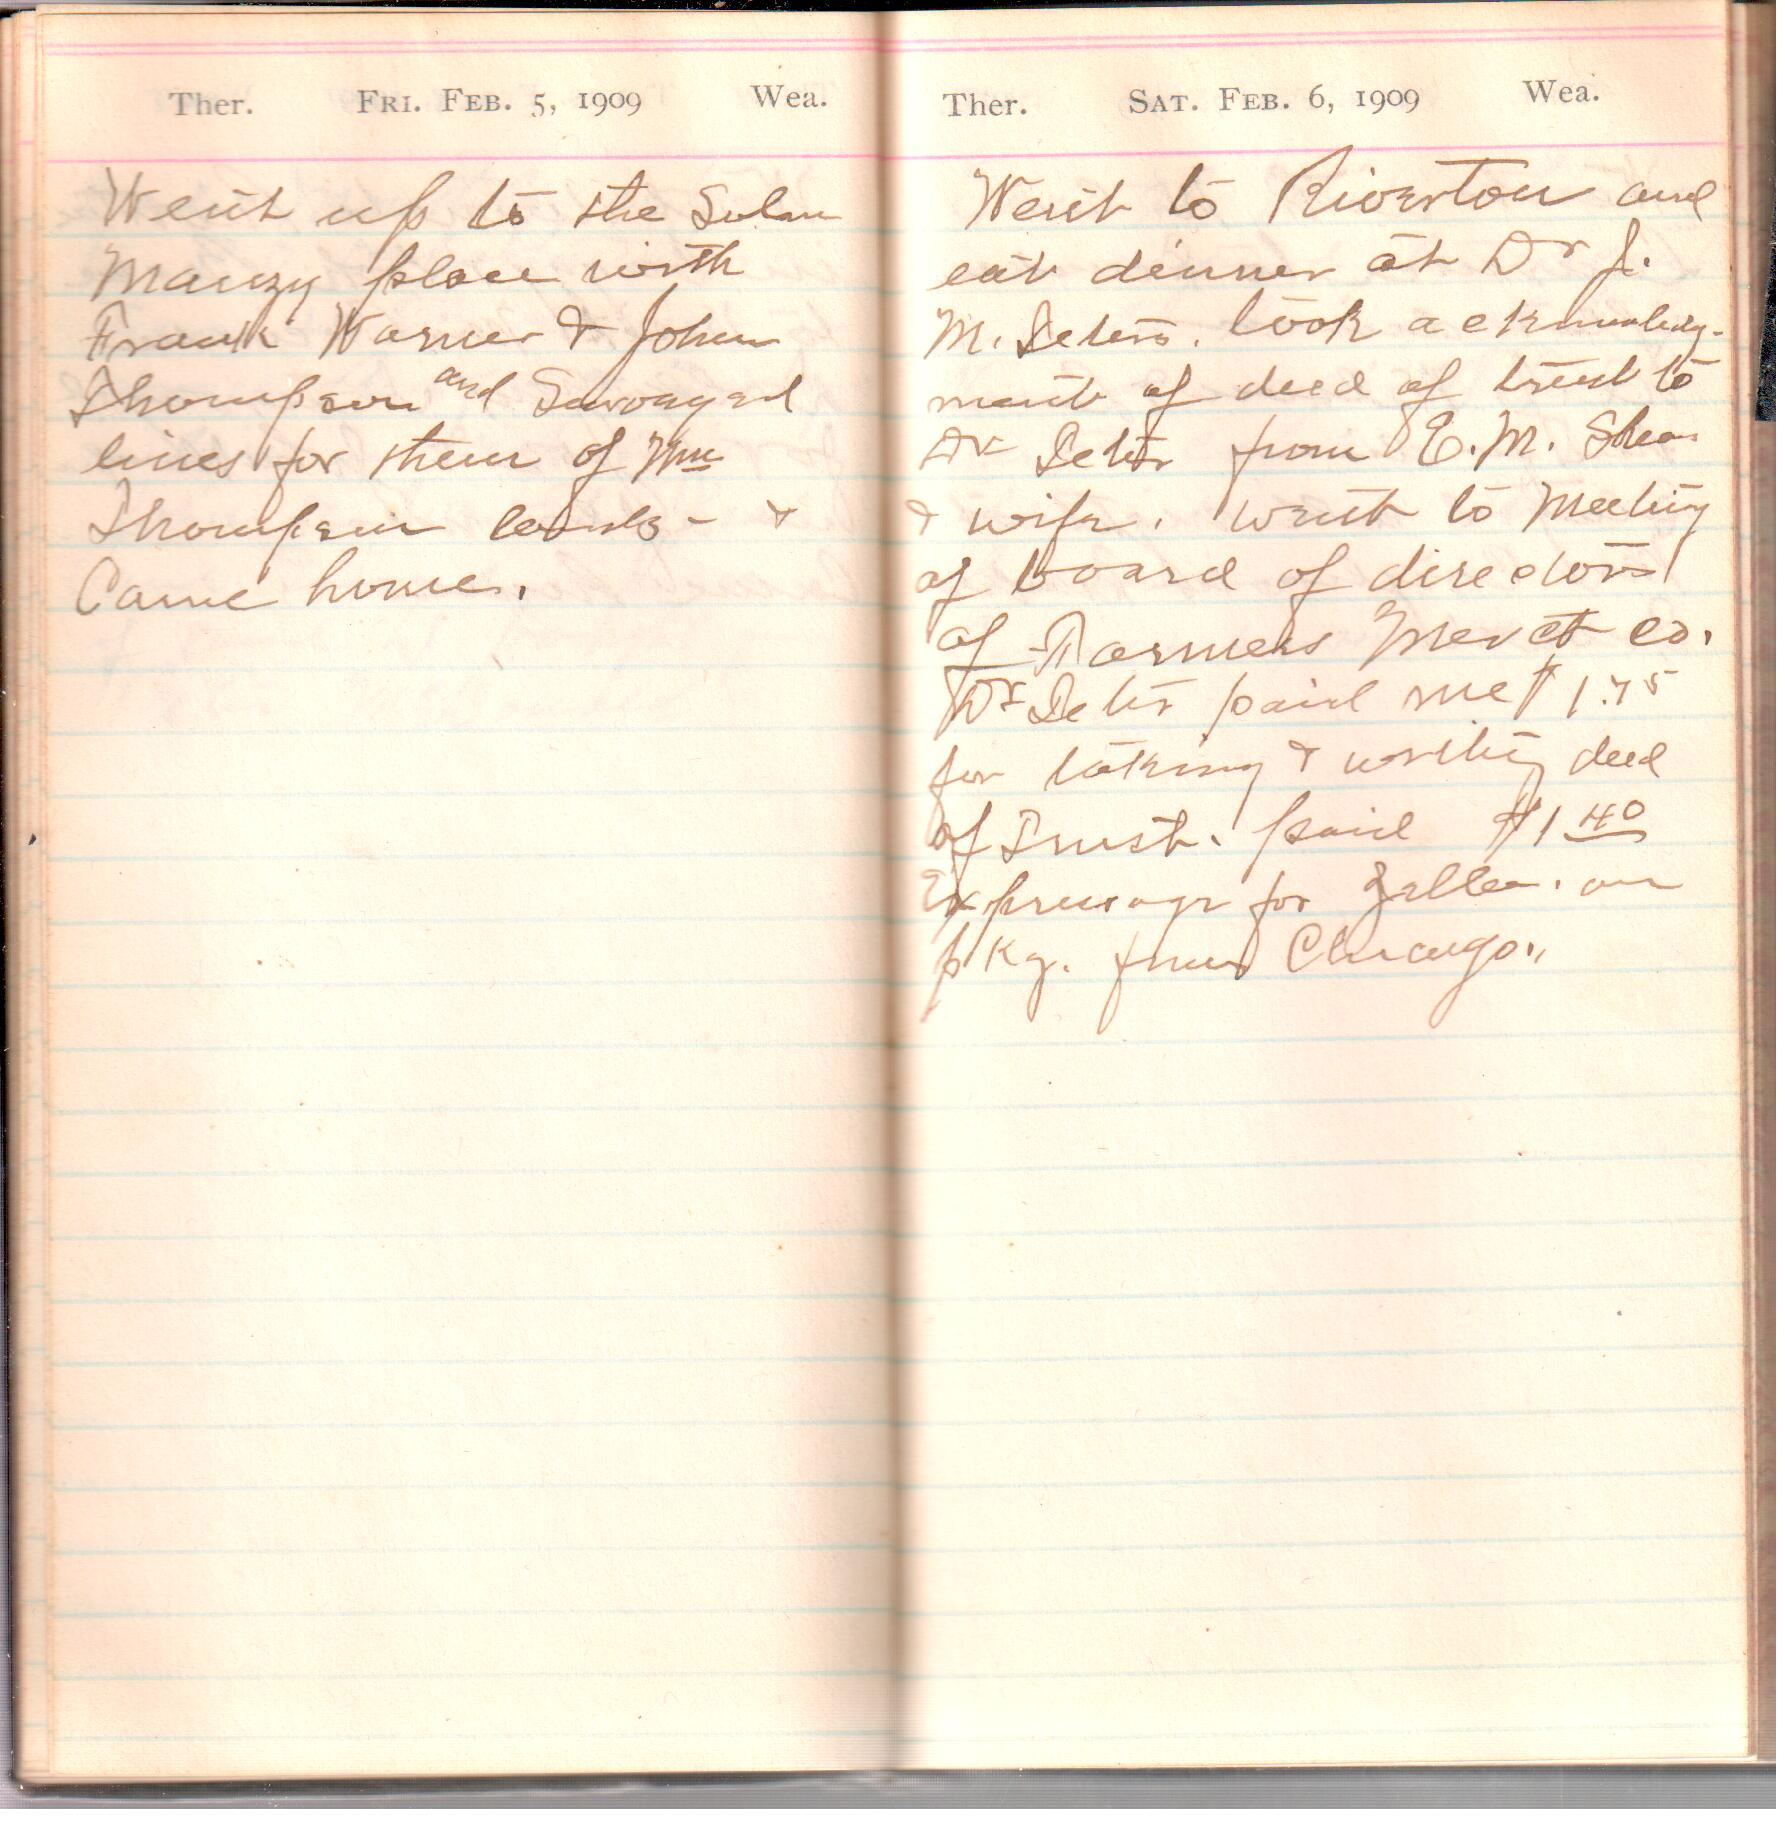 Ther. FRI. FEB. 5, 1909 Wea.
Went up to the
Mauzy place with
Frank Warner & John
Thompson and Survayed
lines for them of Wm
Thompson lands - &
Came home.
Ther. SAT. FEB. 6, 1909 Wea.
Went to Riverton and
eat dinner at Dr J.
M. took acknowledg-
ment of deed of trust to
Dr from E. M.
& wife. went to Meeting
of board of directors
of Farmers Merct Co.
Dr paid me $1.75
for taking & writing deed
of Trust. paid $1 40
Expressage for on
pkg. from Chicago.